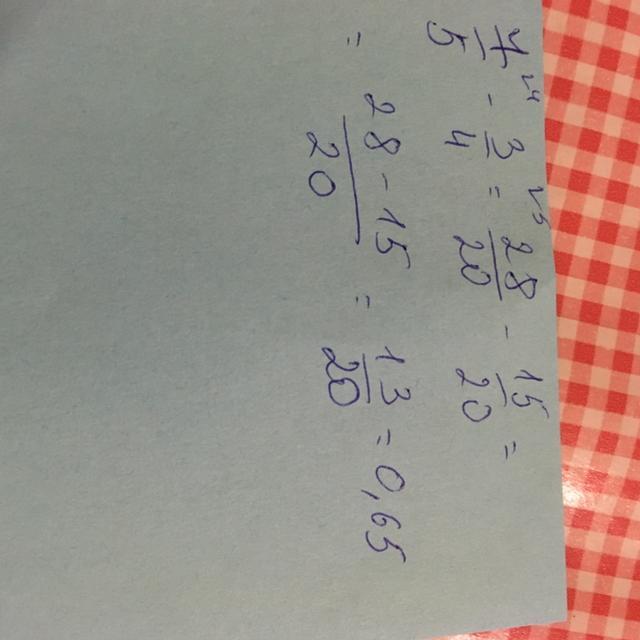 7/5 \4 - 3/4 \5 = 28/20 - 15/20 =
= 28-15/20 = 13/20 = 0,65